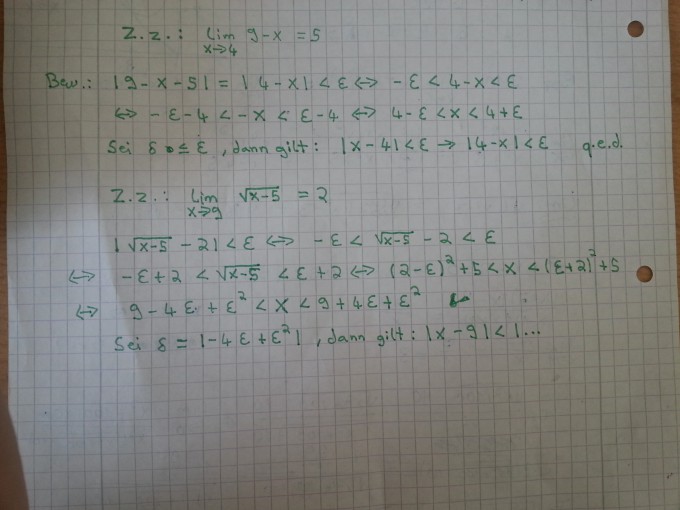 Z.z.: lim x→4 9-x = 5
Bew.: |9-x-5| = |4-x| < ε ⇔ -ε < 4-x < ε
⇔ -ε-4 < -x < ε-4 ⇔ 4-ε < x < 4+ε
Sei δ ≤ ε, dann gilt: |x-4| < ε → |4-x| < ε q.e.d.
Z.z.: lim x→9 √x-5 = 2
|√x-5 - 2| < ε ⇔ -ε < √x-5 - 2 < ε
⇔ -ε+2 < √x-5 < ε+2 ⇔ (2-ε)²+5 < x < (ε+2)²+5
⇔ 9-4ε+ε² < x < 9+4ε+ε²
Sei δ = |-4ε+ε²|, dann gilt: |x-9| < |...